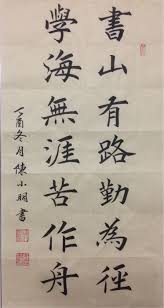 書山有路勤為徑
學海無涯苦作舟
丁酉冬月陳小明書